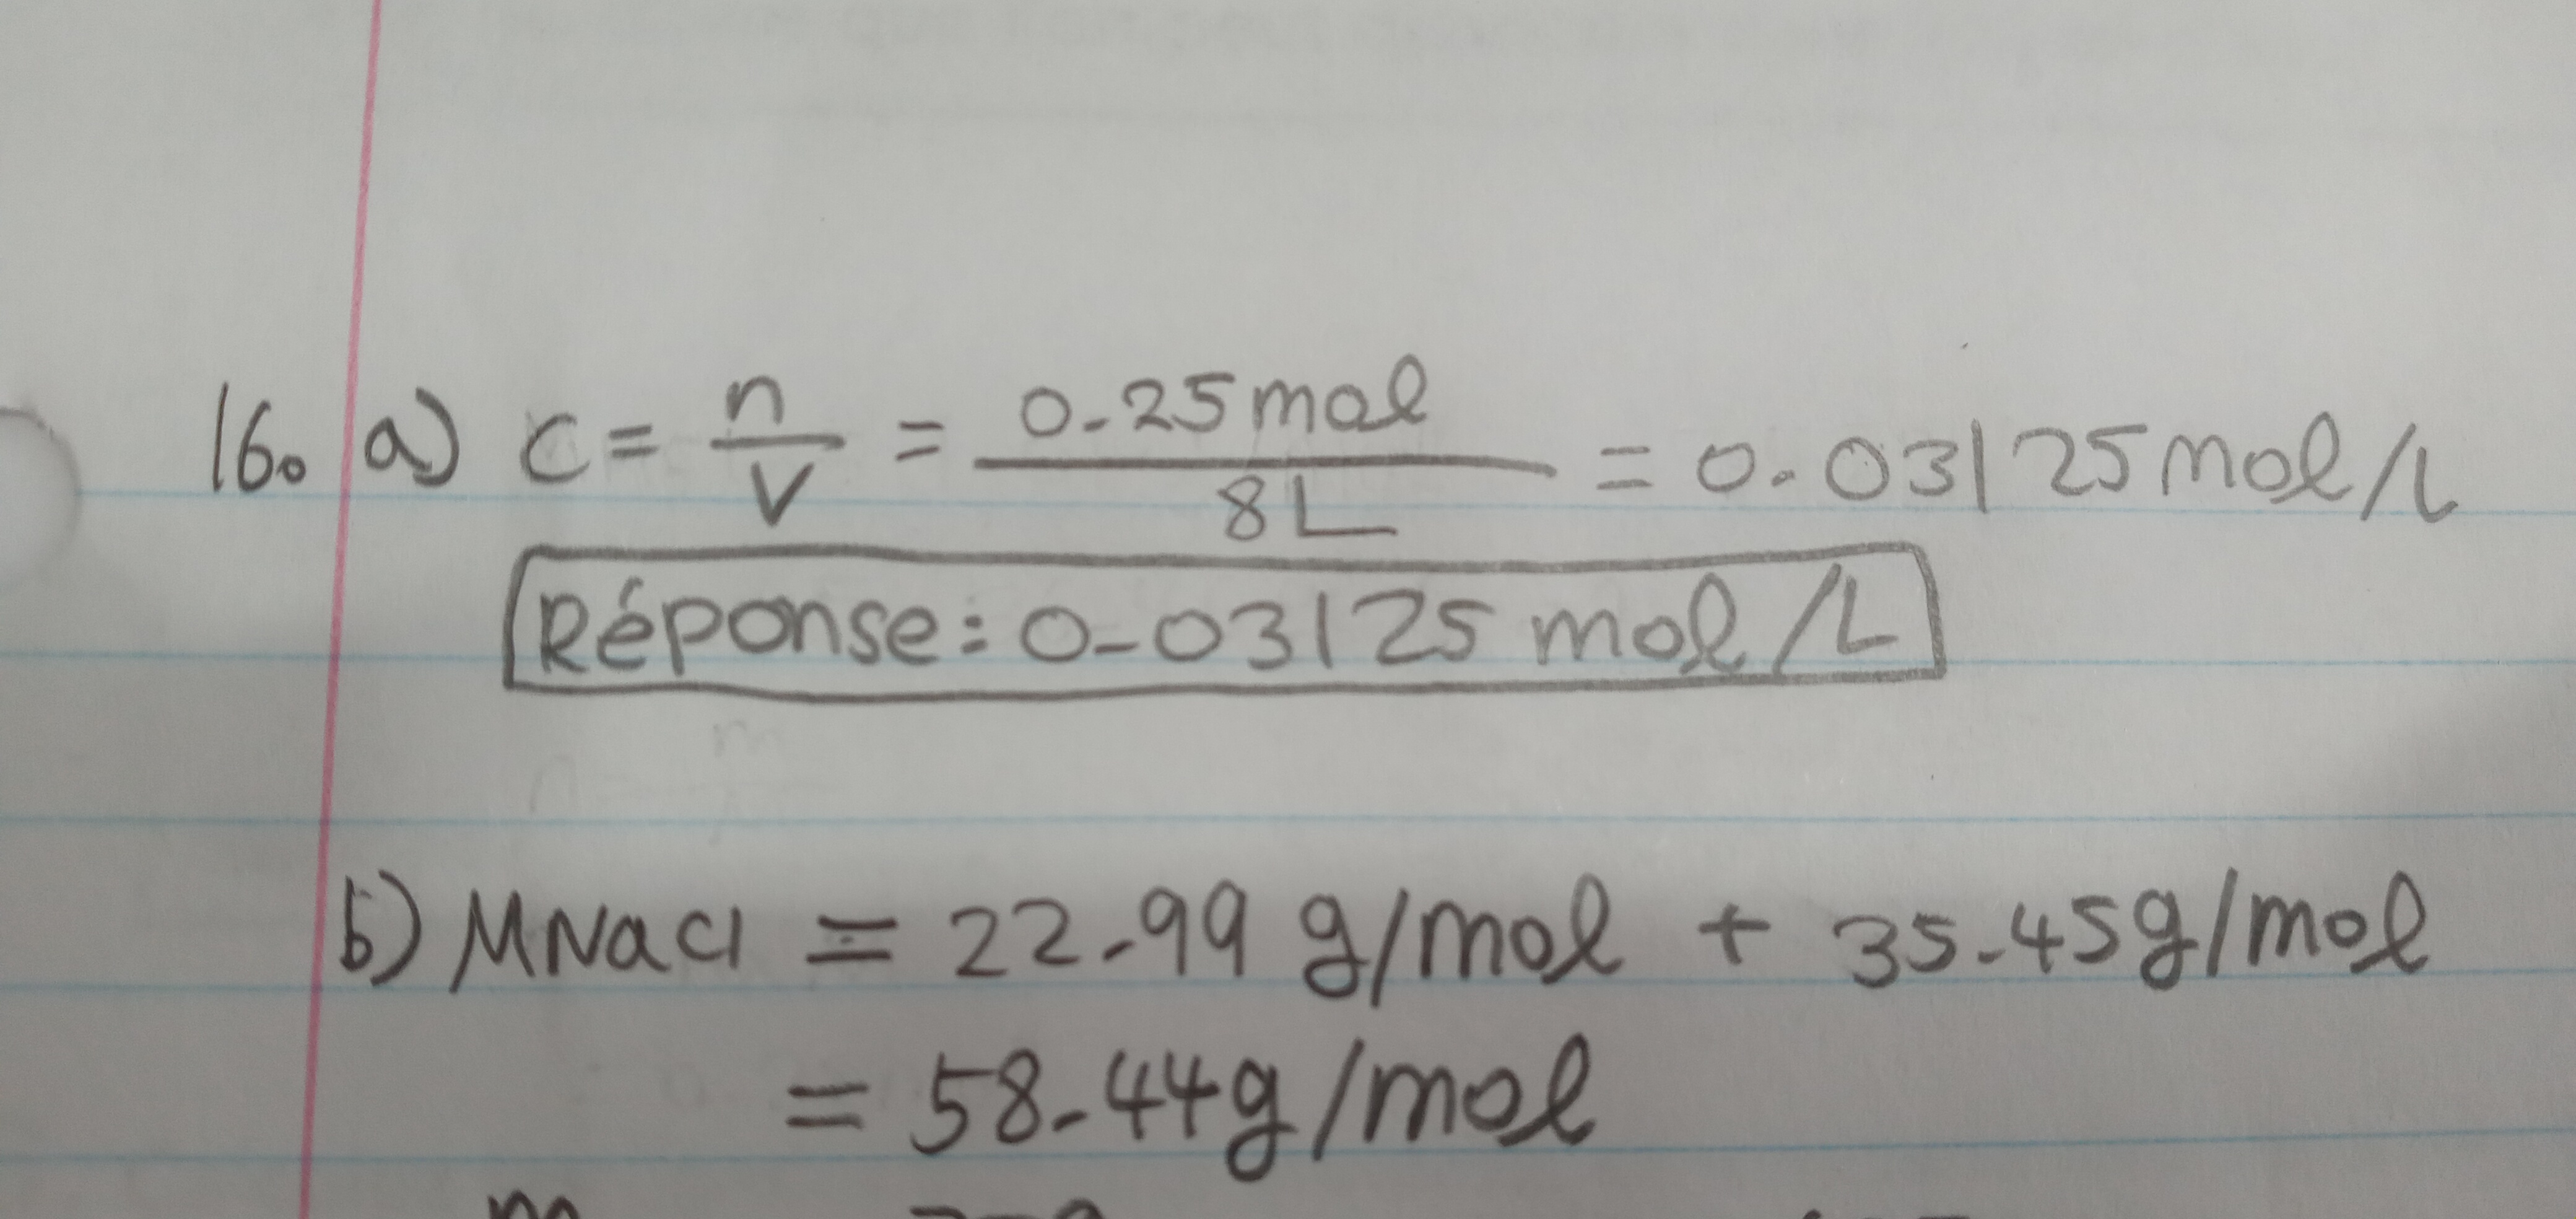 16. a) C = n/V = 0.25 mol / 8 L = 0.03125 mol/L
Réponse: 0.03125 mol/L
b) MNaCl = 22.99 g/mol + 35.45 g/mol
= 58.44 g/mol